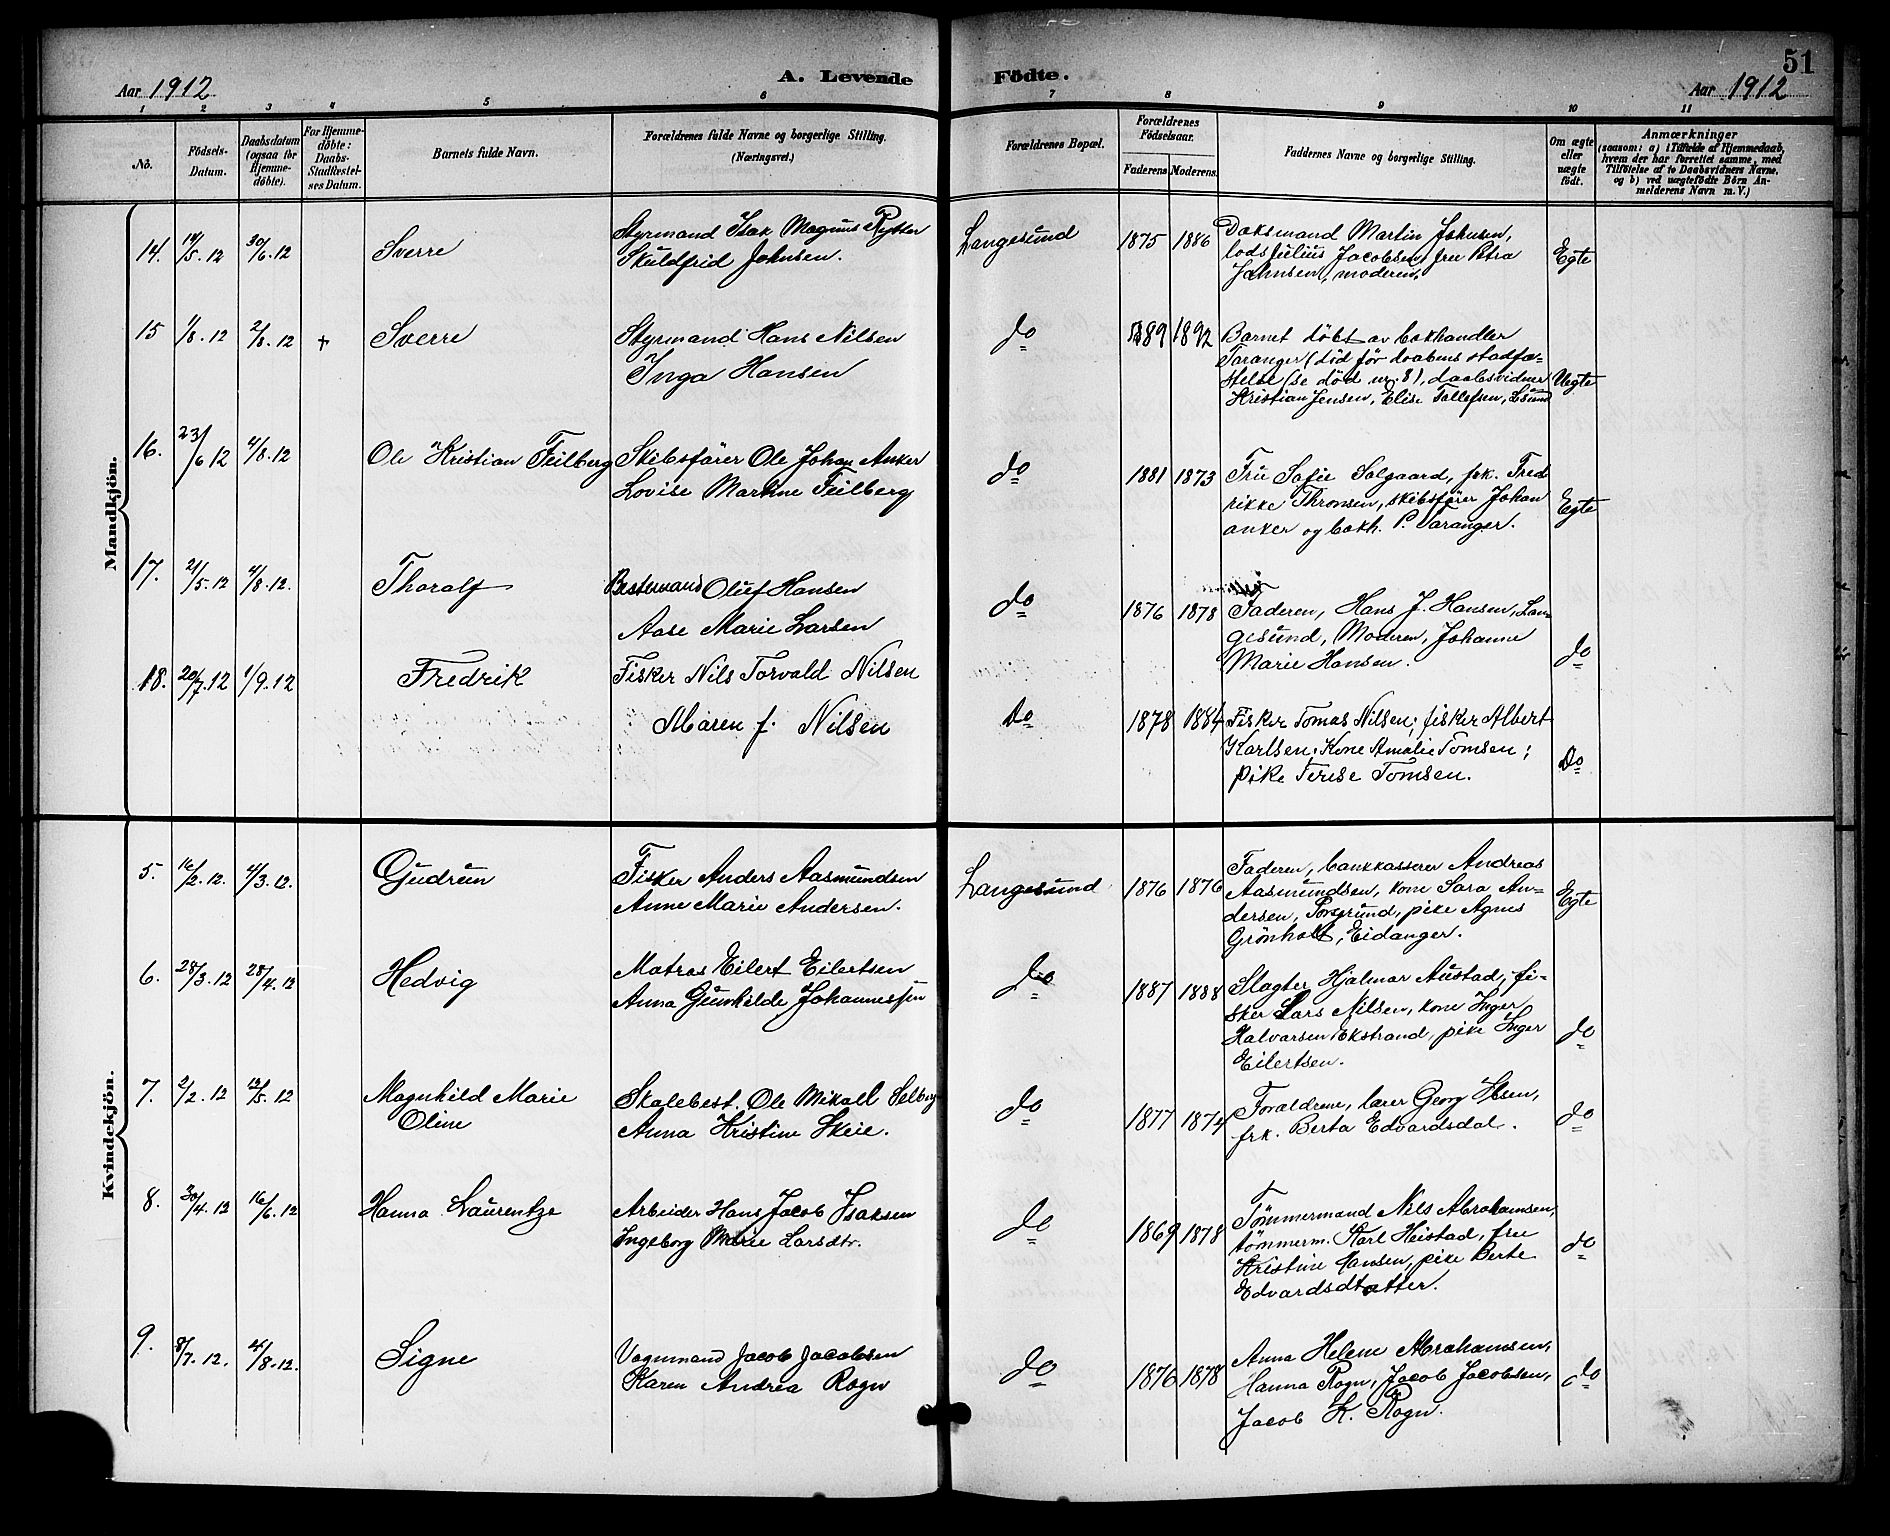 51
Aar 1912
A. Levende Födte.
Aar 1912
1 2 3 4 5 6 7 8 9 10 11
No.
Födsels-Datum.
Daabsdatum (ogsaa for Hjemme-döbte).
For Hjemme-döbte: Daabs-Stadfæstel-ses Datum.
Barnets fulde Navn.
Forældrenes fulde Navne og borgerlige Stilling.
(Næringsvei.)
Forældrenes Bopæl.
Forældrenes Födselsaar.
Faderens. Moderens.
Faddernes Navne og borgerlige Stilling.
Om ægte eller uægte födt.
Anmærkninger
(saasom: a) i Tilfælde af Hjemmedaab,
hvem der har forrettet samme, med
Tilföielse af to Daabsvidners Navne,
og b) ved uægtefödte Börn An-
melderens Navn m. V.)
Mandkjön.
14. 14/5.12 30/6.12 Sverre
Styrmand Isak Magnus Rytter
Skuldfrid Johnsen.
Langesund 1875 1886
Doksmand Martin Johnsen,
lods Julius Jacobsen, fru Petra
Johnsen, moderen.
Egte
15 1/8.12 2/8.12 + Sverre
Styrmand Hans Nilsen
Inga Hansen
do 1889 1892
Barnet döbt av bokhandler
Taranger (död før daabens stadfæ-
stelse (se död nr. 8), daabsvidner
Kristian Jensen, Elise Tollefsen, Lsund
Uegte
16. 23/6 12 4/8.12 Ole Kristian Feilberg
Skibsfører Ole Johan Anker
Lovise Martine Feilberg
do 1881 1873
Fru Sofie Salgaard, frk. Fred
rikke Thronsen, skibsfører Johan
Anker og bokh. P. Taranger.
Egte
17. 21/5.12 4/8.12. Thoralf
Bestemand Oluf Hansen
Aase Marie Larsen
do 1876 1878
Faderen, Hans J. Hansen, Lan-
gesund, Moderen, Johanne
Marie Hansen.
do
18. 20/7.12 1/9.12 Fredrik
Fisker Nils Torvald Nilsen
Maren f. Nilsen
Do 1878 1884
Fisker Tomas Nilsen; fisker Albert
Karlsen; Kone Amalie Tomsen;
pike Terese Tomsen.
Do
Kvindekjön.
5. 16/2.12. 4/3.12. Gudrun
Fisker Anders Aasmundsen
Anne Marie Andersen.
Langesund 1876 1876
Faderen, bankkasserer Andreas
Aasmundsen, kone Sara An-
dersen, Porsgrund, pike Agnes
Grönholt, Eidanger.
Egte
6. 28/3.12 28/4.12 Hedvig
Matros Eilert Eilertsen
Anna Gunhilde Johannessen
do 1887 1888
Slagter Hjalmar Austad, fi-
sker Lars Nilsen, kone Inger
Halvorsen Ekstrand, pike Inger
Eilertsen.
do
7. 2/2.12 12/5.12 Magnhild Marie
Oline
Skolebest. Ole Mikael Selberg
Anna Kristine Skeie.
do 1877 1874
Foraldrene, lærer Georg Ibsen,
frk. Berta Edvardsdal.
do
8. 30/4.12 16/6.12 Hanna Laurentze
Arbeider Hans Jacob Isaksen
Ingeborg Marie Larsdtr.
do 1869 1878
Tömmermand Nils Abrahamsen,
tömmerm. Karl Heistad, fru
Kristine Hansen, pike Berte
Edvardsdtatter.
do
9. 8/7.12. 4/8.12. Signe
Vognmand Jacob Jacobsen
Karen Andrea Rogn
do 1876 1878
Anna Helene Abrahamsen,
Hanna Rogn, Jacob Jacobsen,
Jacob K. Rogn.
do